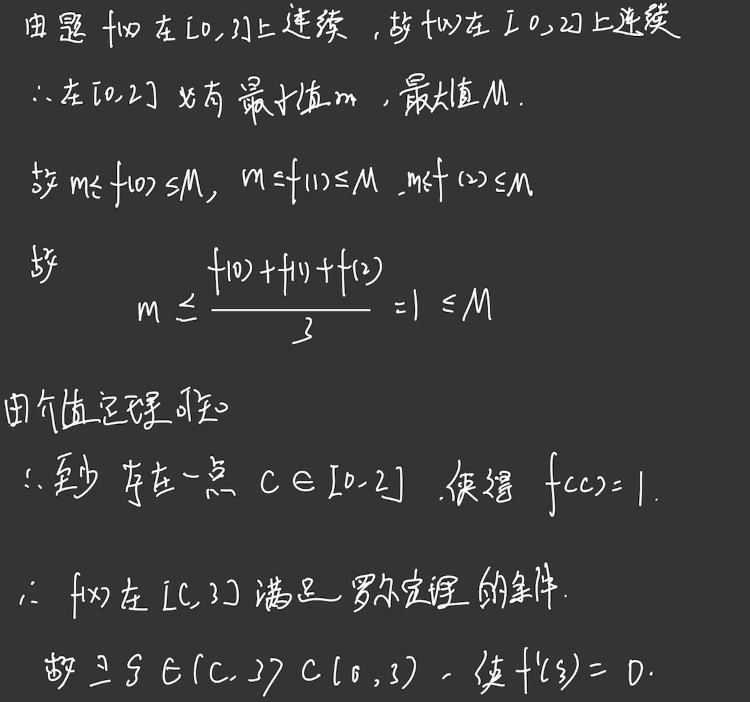 由题 f(x) 在 [0,3]上连续,故f(x)在 [0,2]上连续
∴在[0,2] 必有最小值m,最大值M.
故 m≤f(0)≤M, m≤f(1)≤M, m≤f(2)≤M
故 m ≤ (f(0)+f(1)+f(2))/3 =1 ≤M
由介值定理可知
∴至少存在一点 C∈[0,2],使得 f(c)=1.
∴ f(x)在 [C,3] 满足罗尔定理的条件.
故∃ξ∈(C,3)⊂(0,3),使f'(ξ)=0.